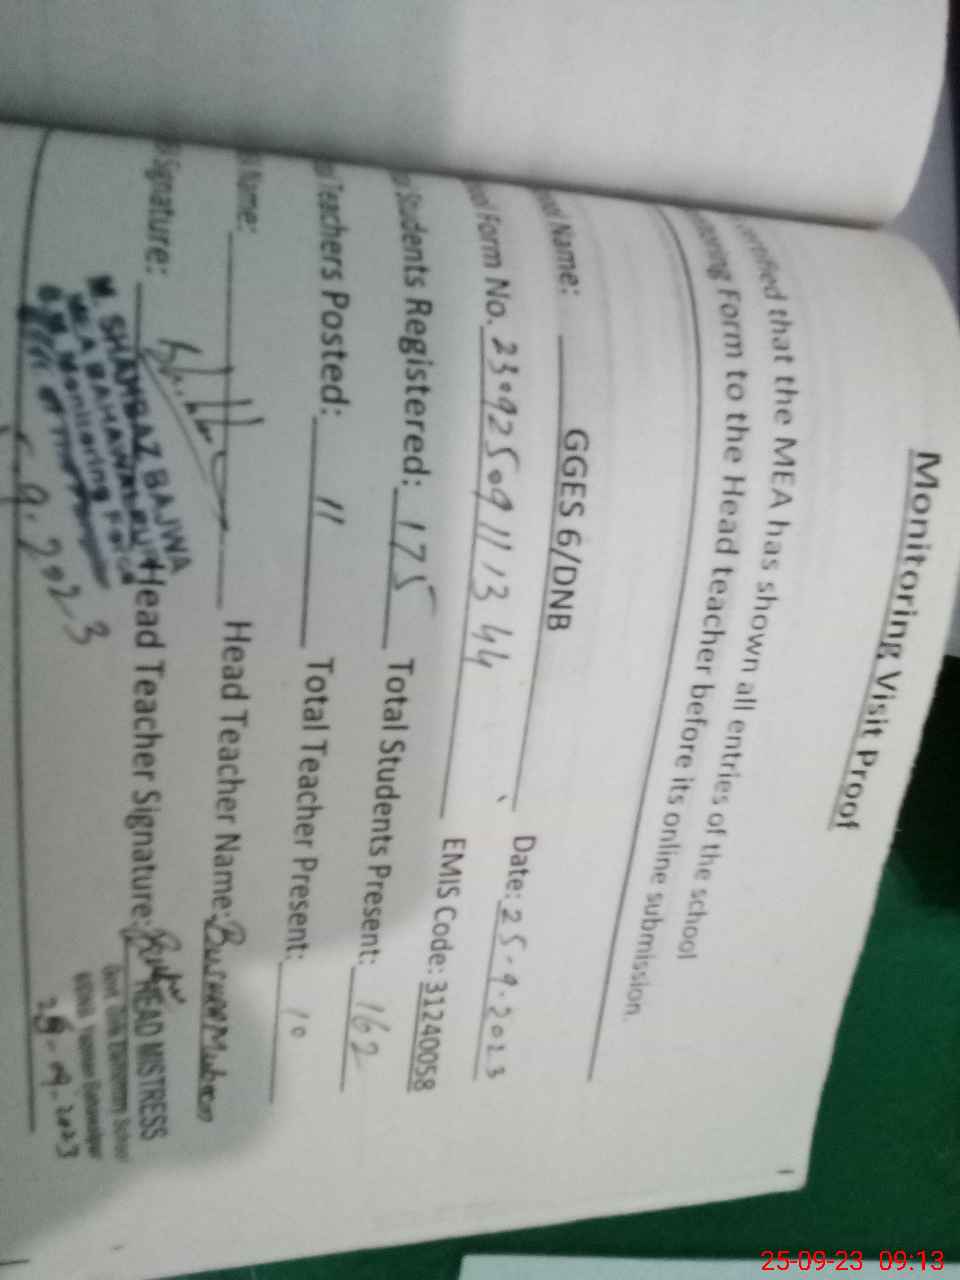 Monitoring Visit Proof
ertified that the MEA has shown all entries of the school
toring Form to the Head teacher before its online submission.
ool Name: GGES 6/DNB Date: 25.9.2023
ool Form No. 23092509111344 EMIS Code: 31240058
Students Registered: 175 Total Students Present: 162
Teachers Posted: 11 Total Teacher Present: 10
Name: Head Teacher Name: Bushra
Signature: Head Teacher Signature:
M. SHAHBAZ BAJWA
MEA BAHAWALPUR
Monitoring Force
HEAD MISTRESS
Govt. Girls Elementary School
9.2023
25-09-2023
25-09-23 09:13